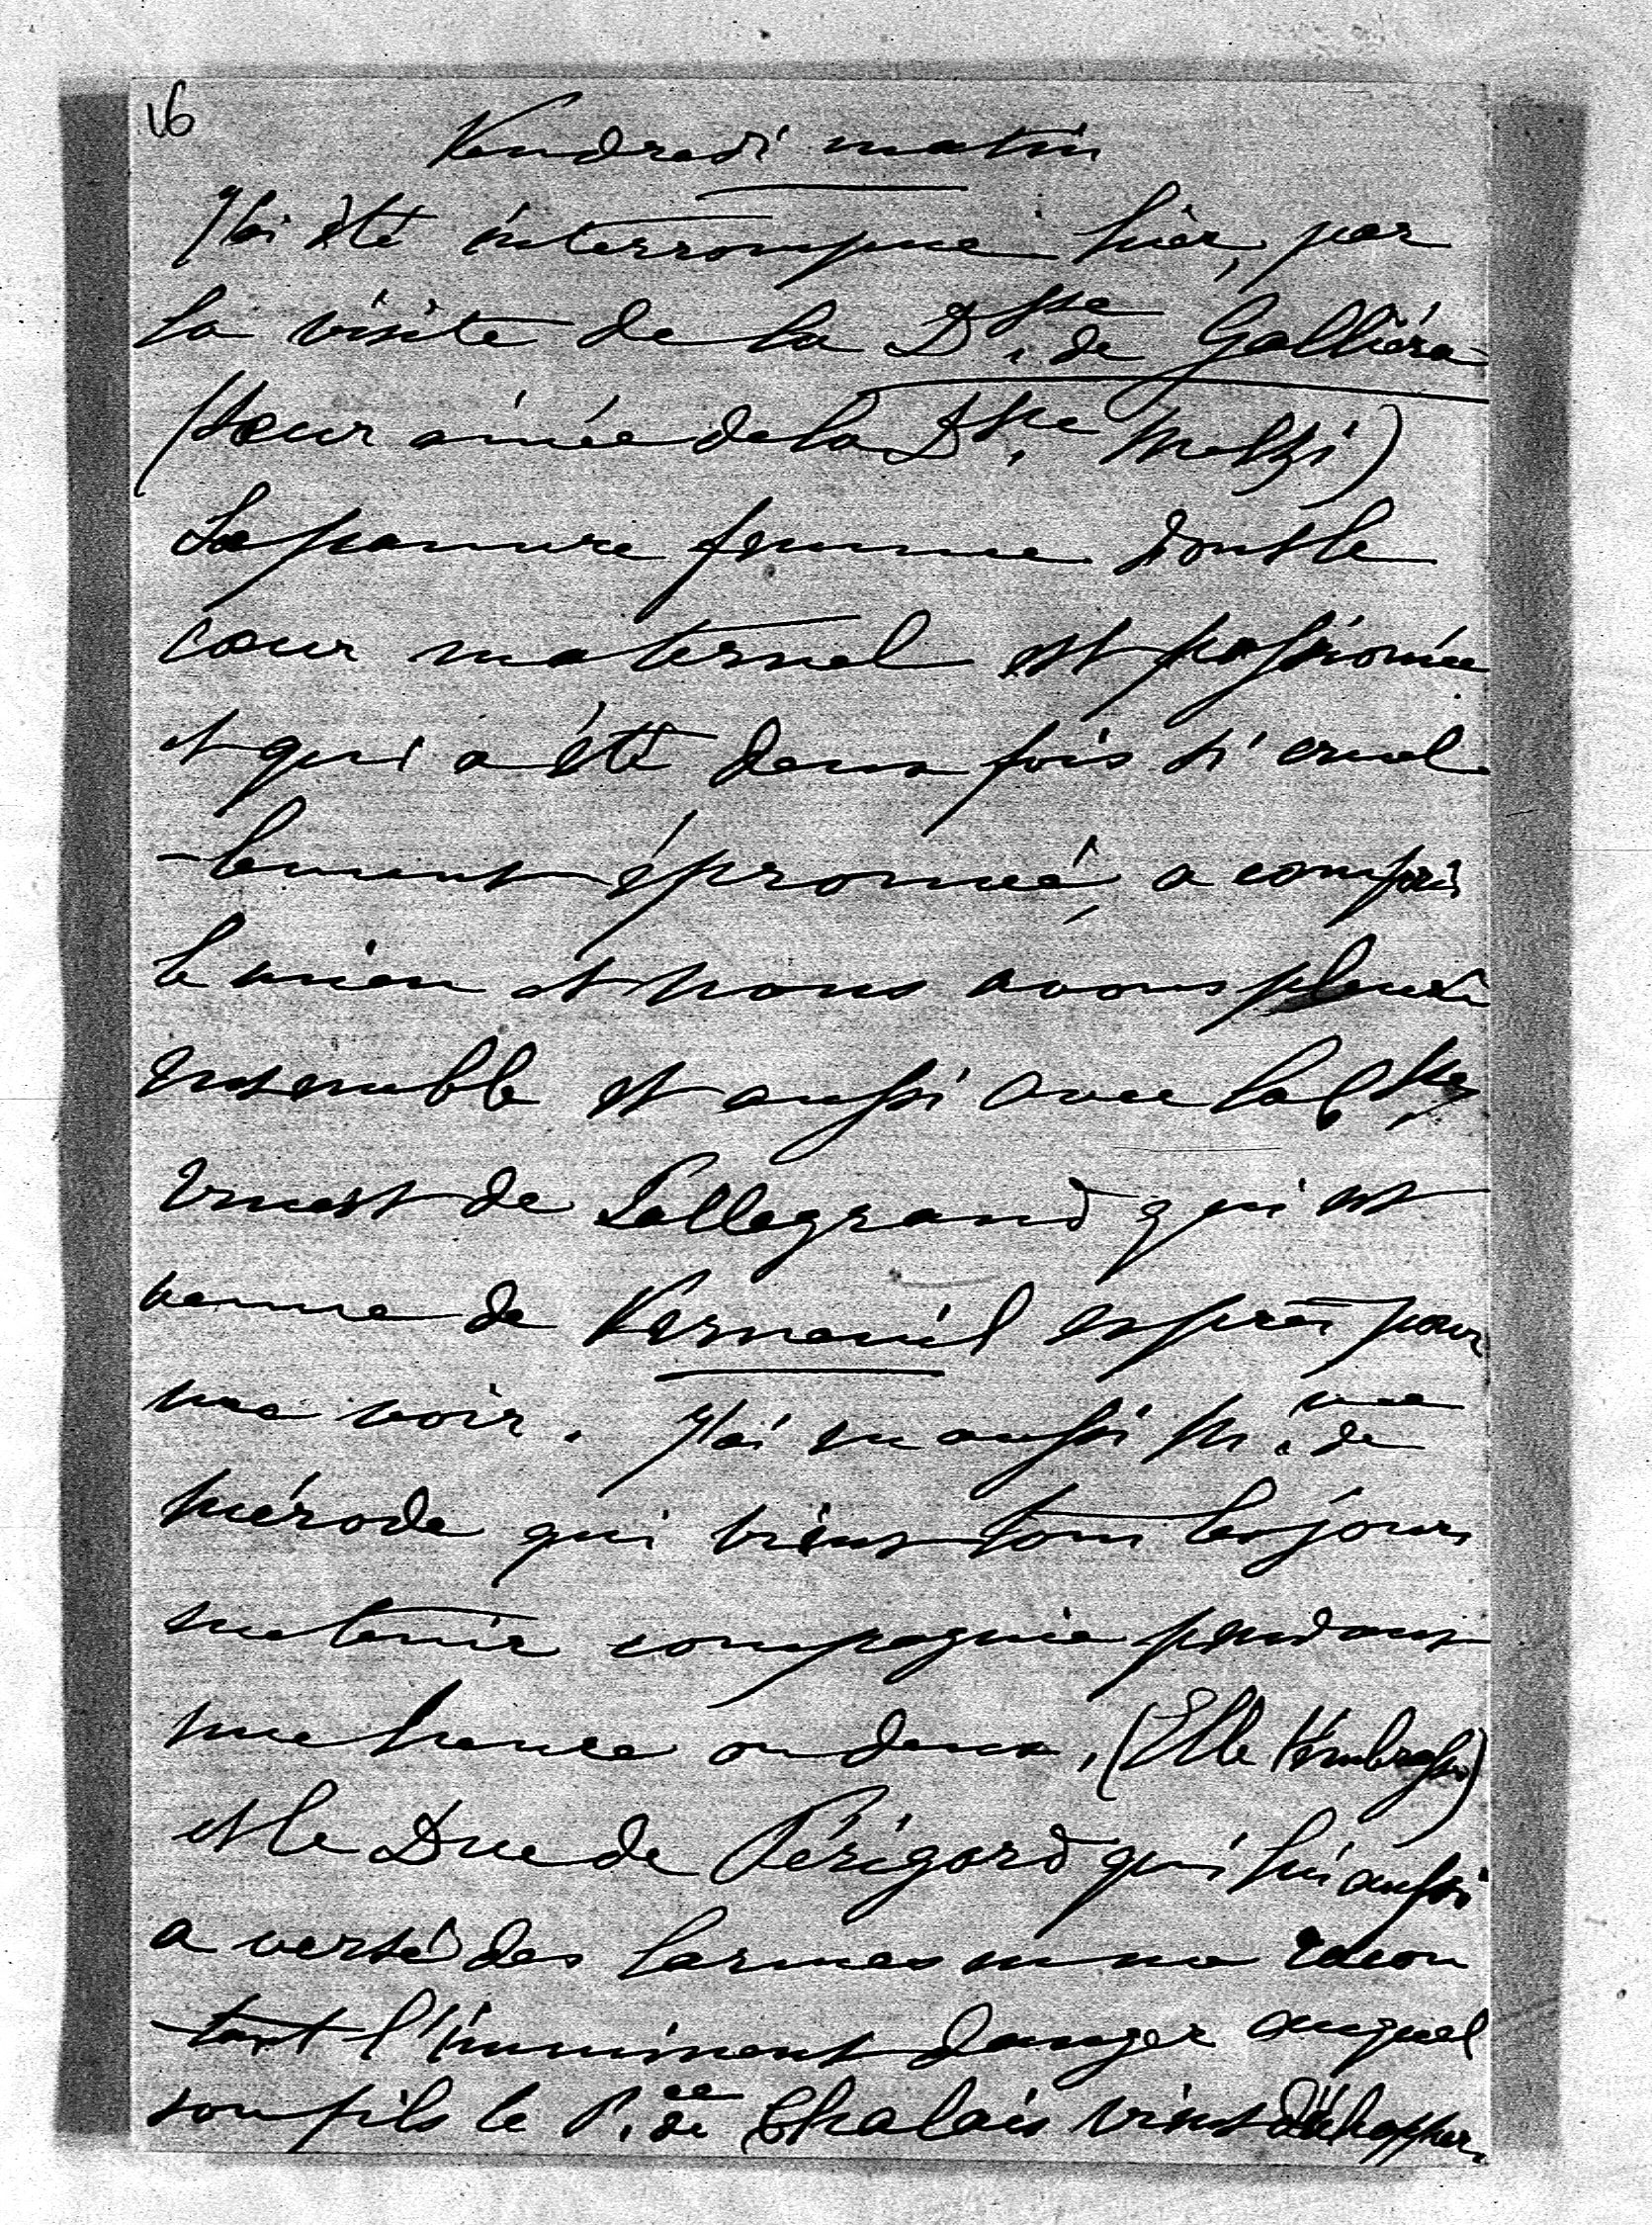 16
Vendredi matin
J'ai été interrompue hier, par
la visite de la D.sse de Galliéra
(sœur ainée de la D.sse Melzi)
La pauvre femme dont le
cœur maternel est passionnée
et qui a été deux fois si cruel-
-lement éprouvée, a compris
le mien et nous avons pleuré
ensemble et aussi avec la C.sse
Ernest de Talleyrand qui est
venue de Verneuil exprès pour
me voir. J'ai vu aussi M.me de
Mérode qui vient tous les jours
me tenir compagnie pendant
une heure ou deux, (Elle t'embrasse)
et le Duc de Périgord qui lui aussi
a versé des larmes en me racon
-tant l'imminent danger auquel
son fils le P.ce de Chalais vient d'échapper.